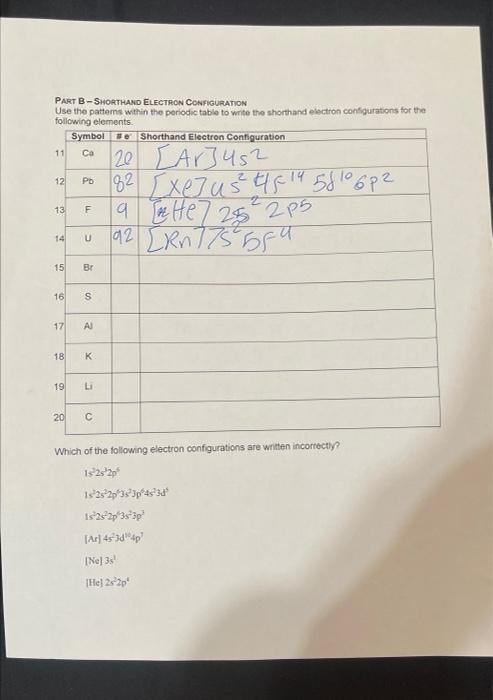 PART B – SHORTHAND ELECTRON CONFIGURATION
Use the patterns within the periodic table to write the shorthand electron configurations for the
following elements.
Symbol # e⁻ Shorthand Electron Configuration
11 Ca 20 [Ar]4s2
12 Pb 82 [Xe]4s² 4f¹⁴ 5d¹⁰ 6p2
13 F 9 [He] 2s² 2p5
14 U 92 [Rn]7s² 5f4
15 Br
16 S
17 Al
18 K
19 Li
20 C
Which of the following electron configurations are written incorrectly?
[Ar] 4s²3d¹⁰4p⁷
[Ne] 3s¹
[He] 2s²2p⁴